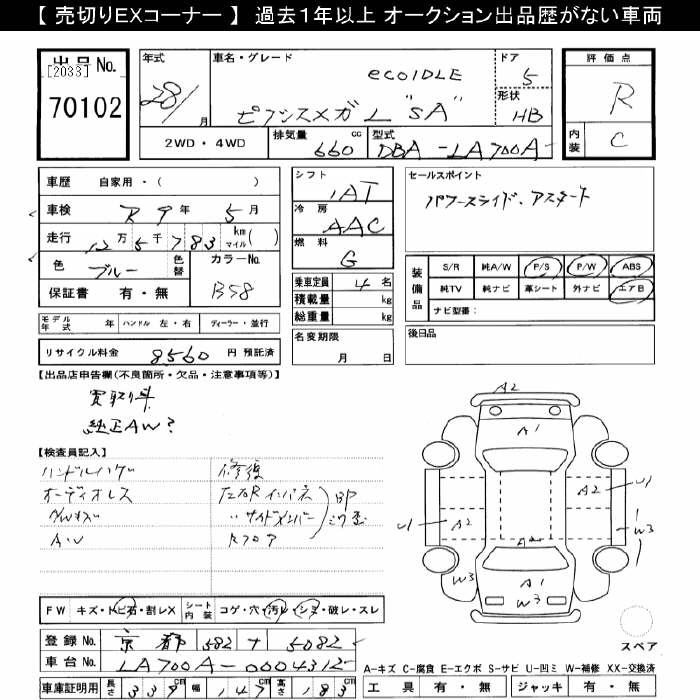 【 売切りEXコーナー 】 過去1年以上 オークション出品歴がない車両
出品 No.
[2033]
70102
年式
28/
月
車名・グレード
eCOIDLE
ピクシスメガ L "SA"
ドア
5
形状
HB
評価点
R
内装
C
2WD ・ 4WD
排気量
660
cc
型式
DBA -LA700A-
車歴 自家用・( )
車検 R 9 年 5 月
走行 12 万 5 千 783 km マイル( )
色 ブルー 色替
カラーNo.
B58
保証書 有・無
シフト
IAT
冷房
AAC
燃料
G
乗車定員 4 名
積載量 kg
総重量 kg
名変期限
月 日
セールスポイント
パワースライド、アスタート
装備品
S/R 純A/W P/S P/W ABS
純TV 純ナビ 革シート 外ナビ エアB
ナビ型番:
後日品
モデル年式 年 ハンドル 左・右 ディーラー・並行
リサイクル料金 8560 円 預託済
【出品店申告欄(不良箇所・欠品・注意事項等)】
買取り車
純正AW?
【検査員記入】
ハンドルハゲ 修復
オーディオレス 左右Rインパネ
〃サイドメンバー
BP
A・W Rフロア
F W キズ・トビ石・割レX シート内装 コゲ・穴・汚レ・シミ・破レ・スレ
登録 No. 京都 582 ナ 5082
車台 No. LA700A-0004312
車庫証明用 長さ 339 cm 幅 147 cm 高さ 183 cm
A2
A1
A2
U1
U1
A2
W3
A2
W3
A1
W3
スペア
A-キズ C-腐食 E-エクボ S-サビ U-凹ミ W-補修 XX-交換済
工具 有・無 ジャッキ 有・無